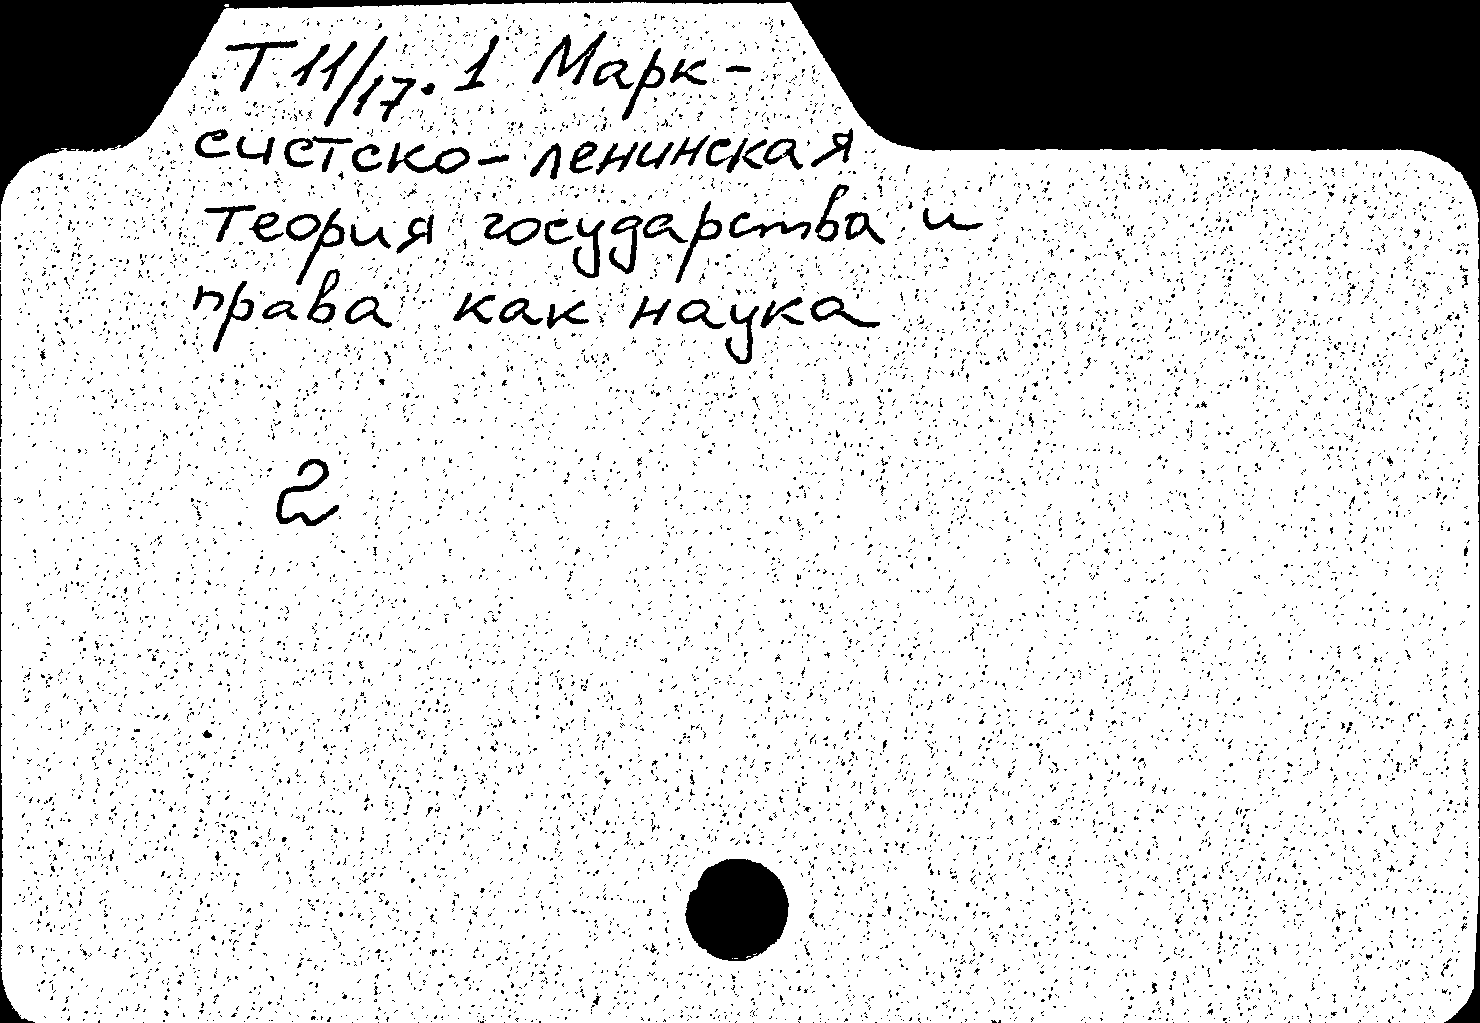 Т11/17.1 Марк-
систско-ленинская
теория государства и
права как наука
2